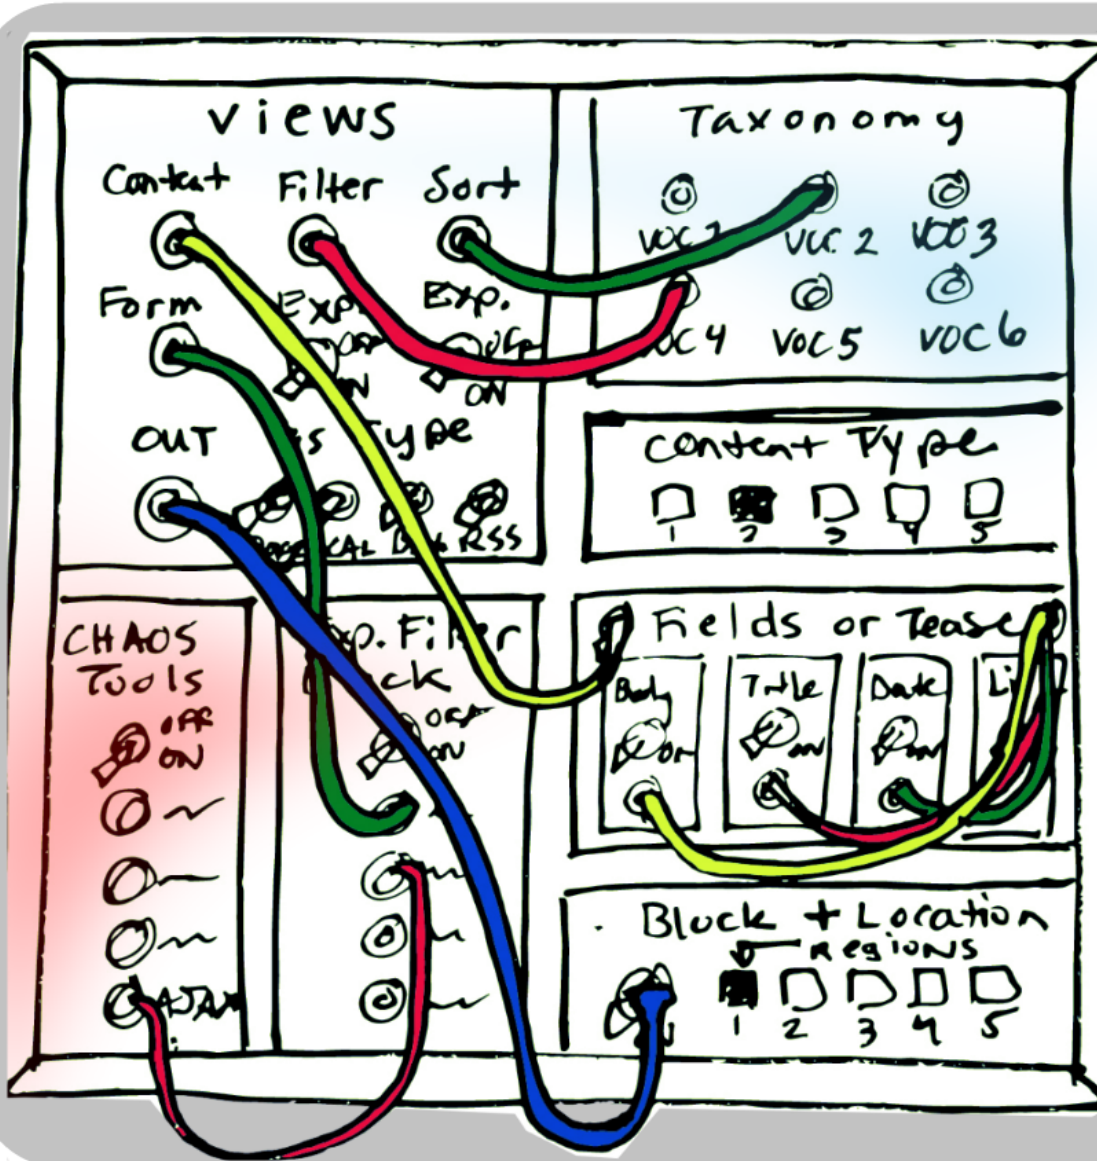 views
Content Filter Sort
Form Exp. Exp.
OFF OFF
ON ON
OUT Type
RSS
Taxonomy
VOC 2 VOC 3
VOC 4 VOC 5 VOC 6
Content Type
1 2 3 4 5
CHAOS
Tools
OFF
ON
AJAX
Exp. Filter
OFF
ON
Fields or Tease
Body Title Date Li
ON ON ON
Block + Location
REGIONS
1 2 3 4 5